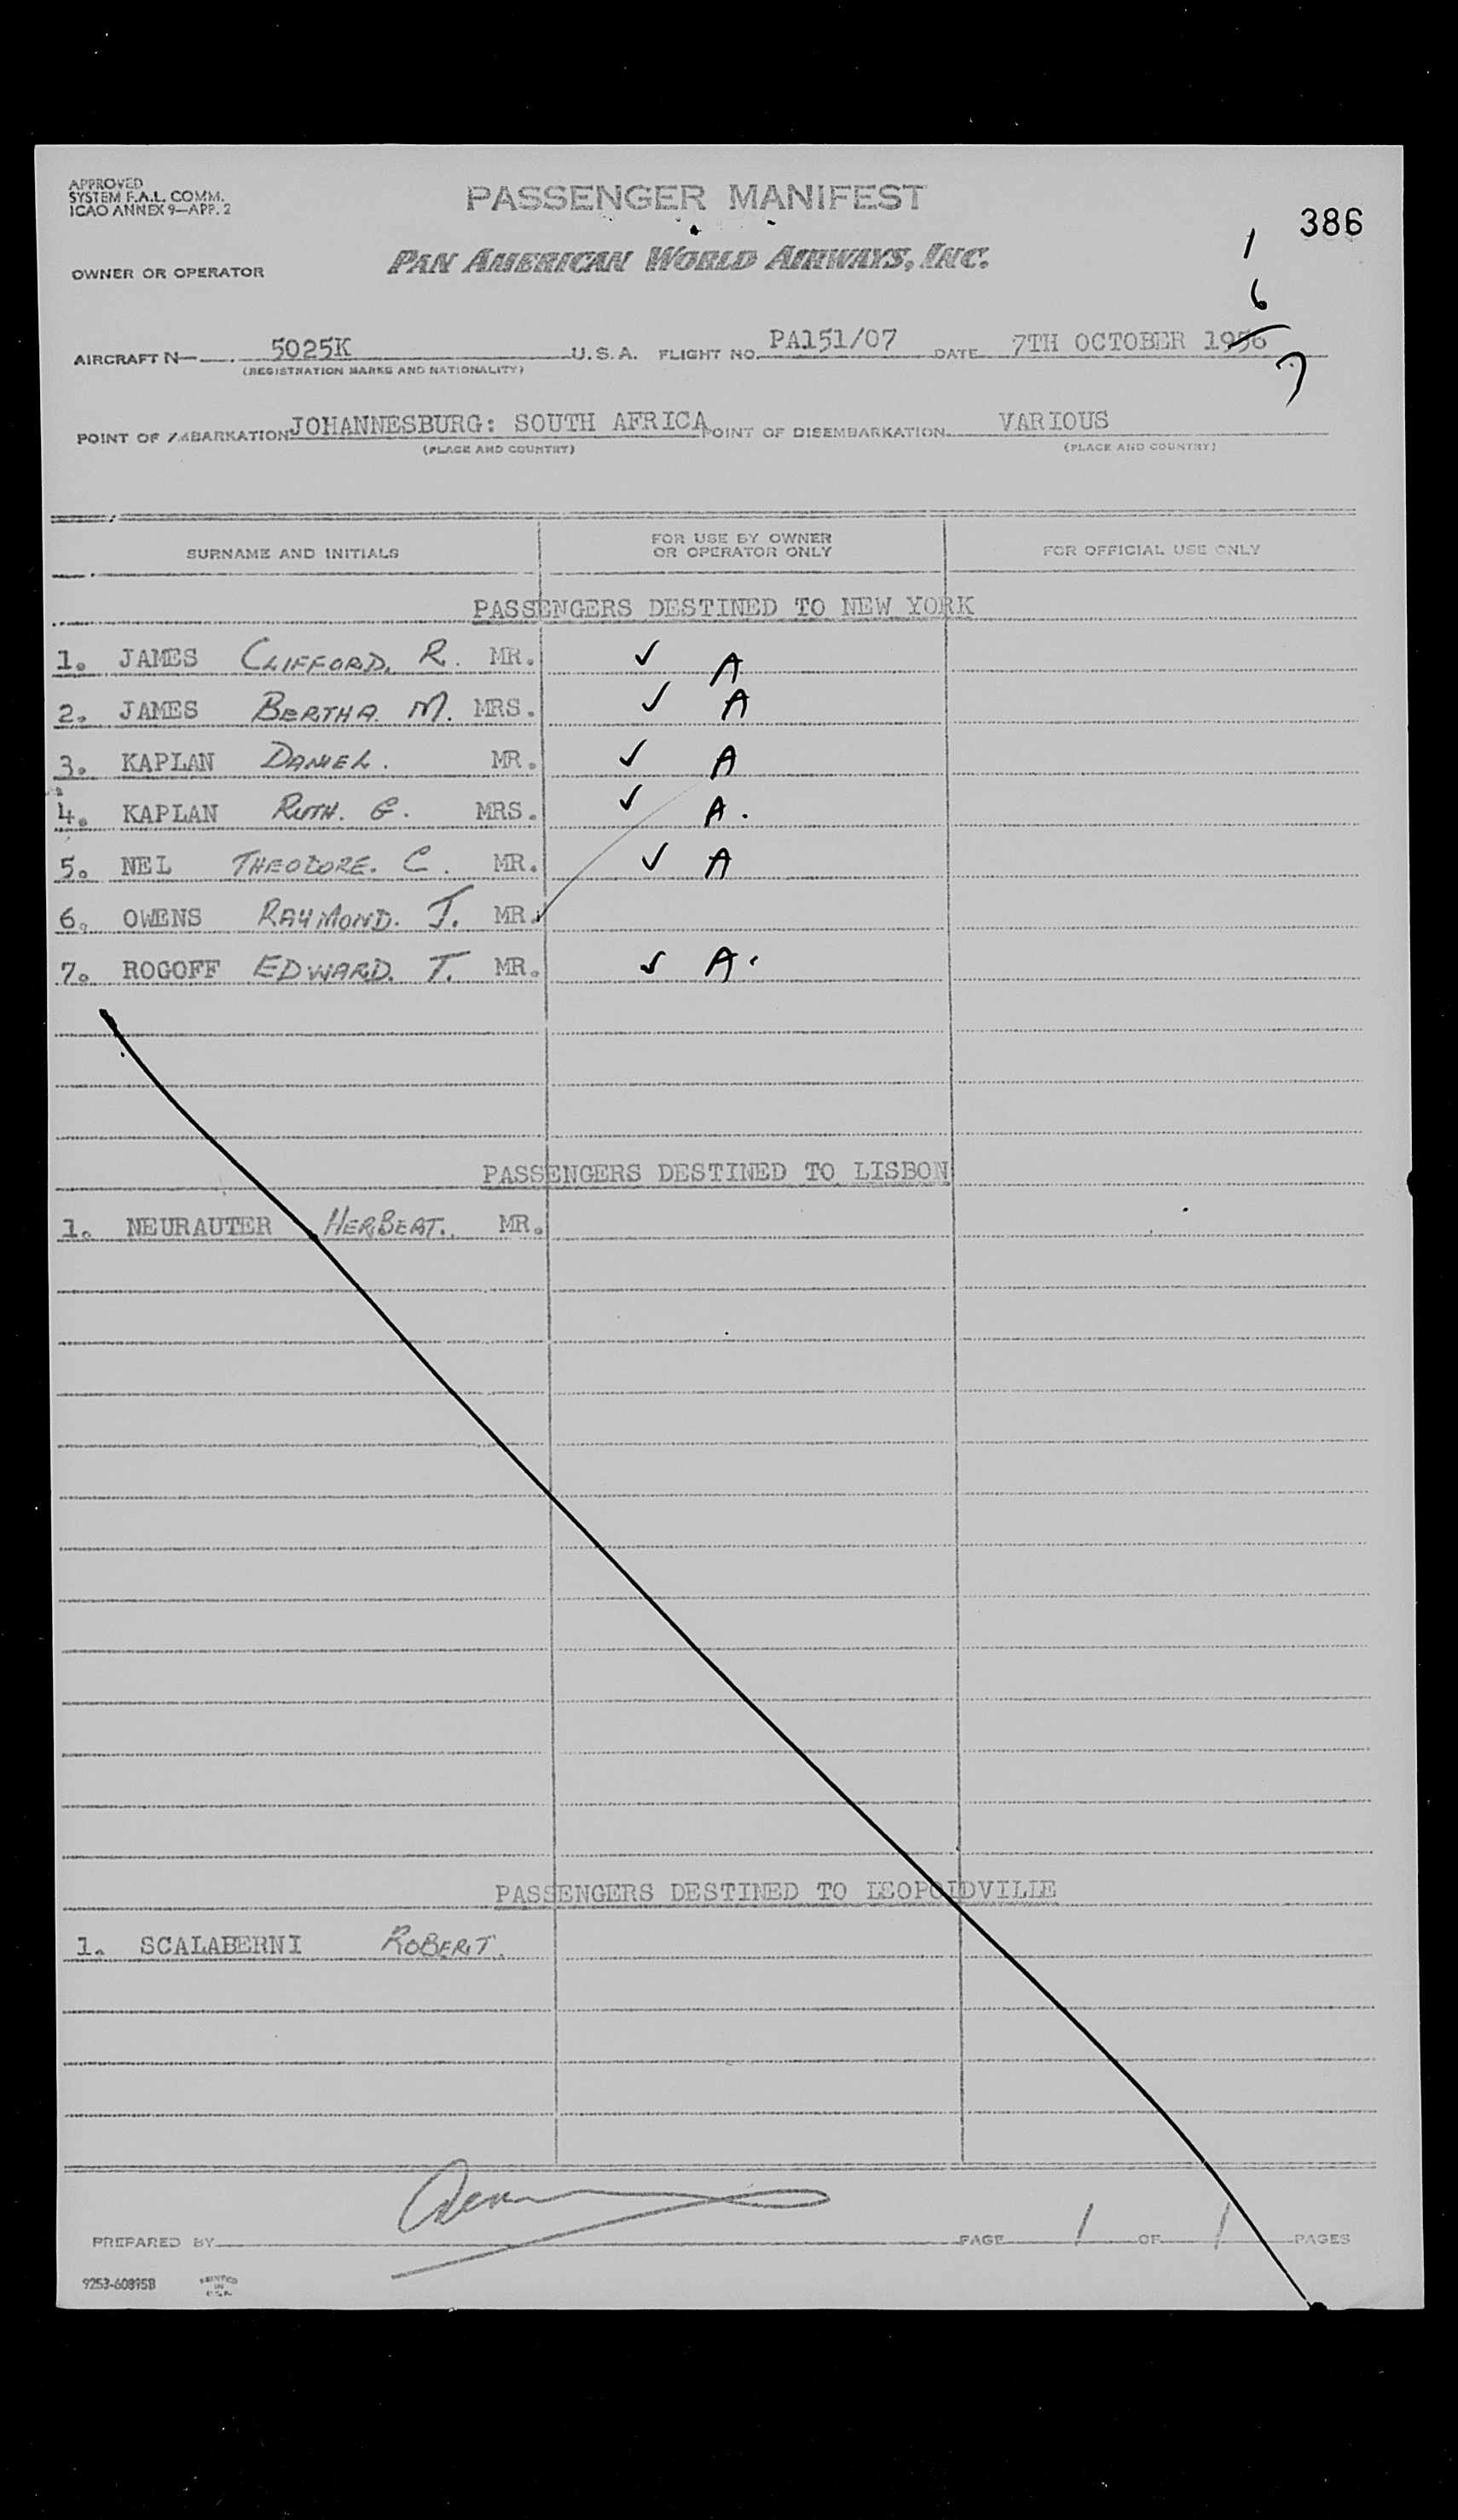 APPROVED
SYSTEM F.A.L. COMM.
ICAO ANNEX 9—APP. 2
PASSENGER MANIFEST
386
OWNER OR OPERATOR
PAN AMERICAN WORLD AIRWAYS, INC.
1
6
7
AIRCRAFT N— 5025K U.S.A. FLIGHT NO. PA151/07 DATE 7TH OCTOBER 1956
(REGISTRATION MARKS AND NATIONALITY)
POINT OF EMBARKATION JOHANNESBURG: SOUTH AFRICA POINT OF DISEMBARKATION VARIOUS
(PLACE AND COUNTRY) (PLACE AND COUNTRY)
SURNAME AND INITIALS FOR USE BY OWNER OR OPERATOR ONLY FOR OFFICIAL USE ONLY
PASSENGERS DESTINED TO NEW YORK
1. JAMES CLIFFORD. R. MR. ✓ A
2. JAMES BERTHA. M. MRS. ✓ A
3. KAPLAN DANIEL. MR. ✓ A
4. KAPLAN RUTH. G. MRS. ✓ A.
5. NEL THEODORE. C. MR. ✓ A
6. OWENS RAYMOND. J. MR.
7. ROGOFF EDWARD. T. MR. ✓ A.
PASSENGERS DESTINED TO LISBON
1. NEURAUTER HERBERT. MR.
PASSENGERS DESTINED TO LEOPOLDVILLE
1. SCALABERNI ROBERT.
PREPARED BY PAGE 1 OF 1 PAGES
9253-60895B PRINTED
IN
U.S.A.